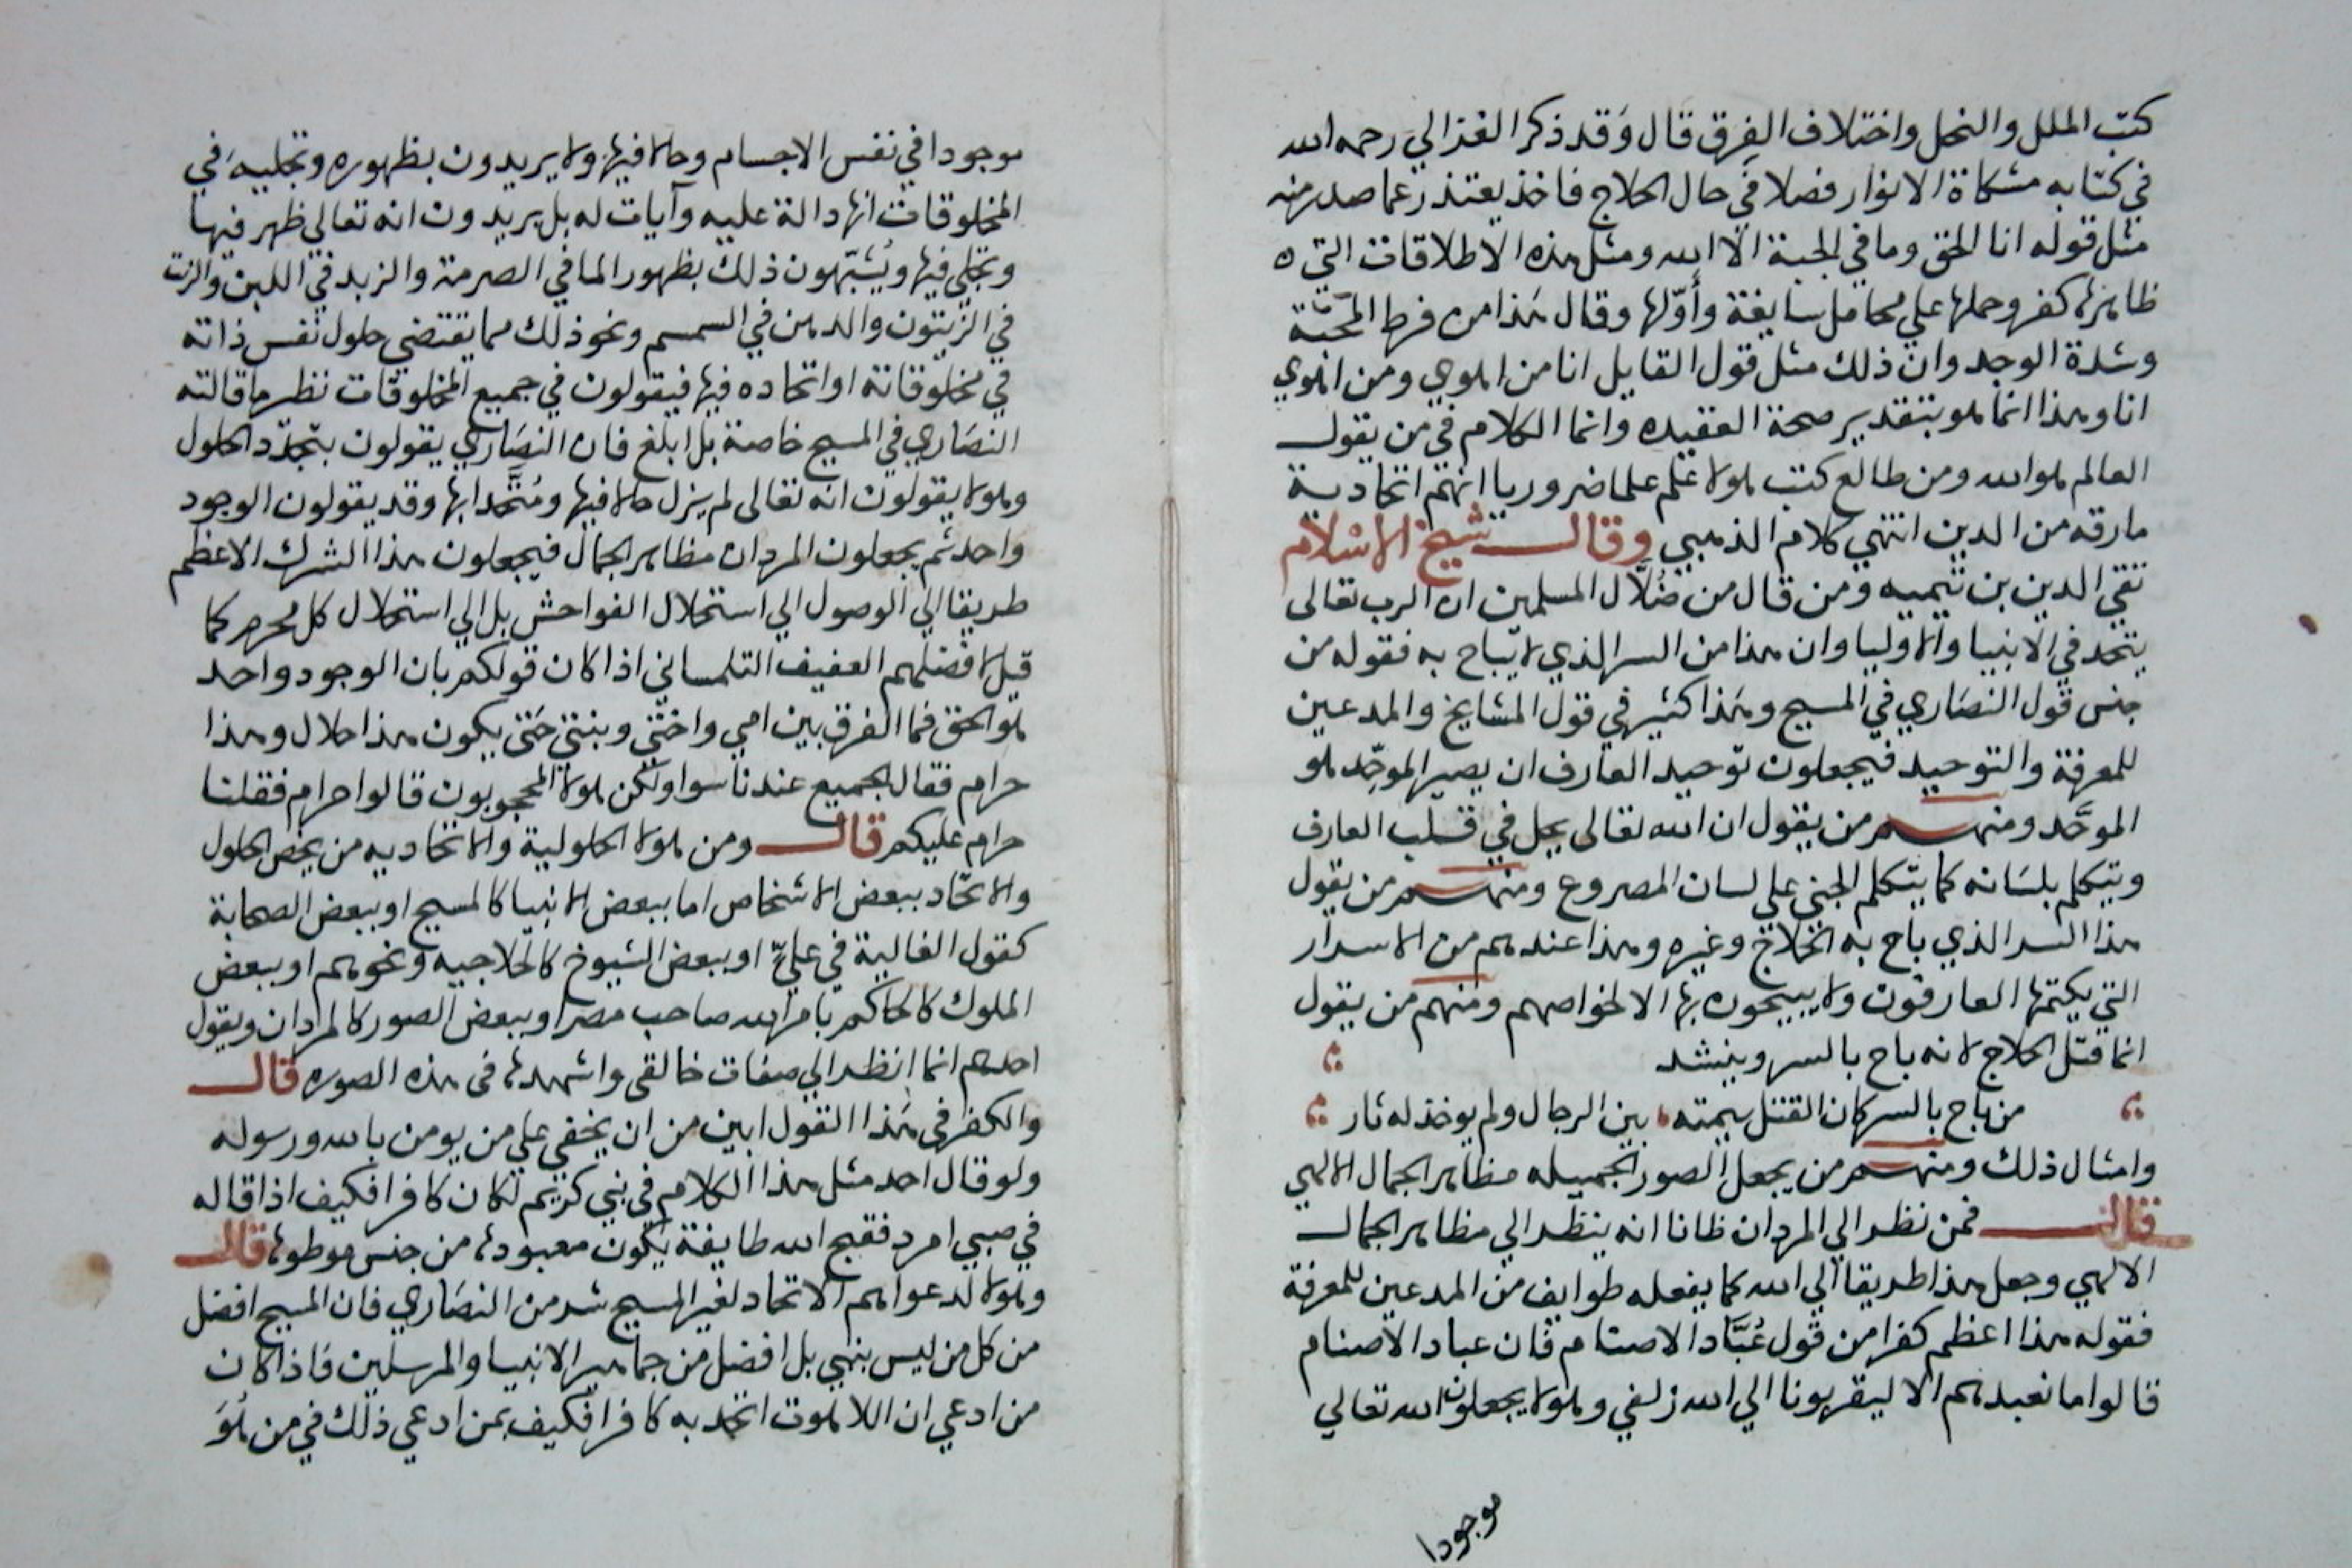 كتب الملل والنحل واختلاف الفرق قال وقد ذكر الغزالي رحمه الله
في كتابه مشكاة الانوار فصلا في حال الحلاج فاخذ يعتذر عما صدر منه
مثل قوله انا الحق وما في الجبة الا الله ومثل هذه الاطلاقات التي ه
ظاهرها كفر وحملها علي محامل سايغة وأوّلها وقال هذا من فرط المحبّة
وشدة الوجد وان ذلك مثل قول القايل انا من اهوي ومن اهوي
انا وهذا انما هو بتقدير صحة العقيده وانما الكلام في من يقول
العالم هو الله ومن طالع كتب هولا علم علما ضروريا انهم اتحادية
مارقه من الدين انتهي كلام الذهبي وقال شيخ الاسلام
تقي الدين بن تيميه ومن قال من ضُلّال المسلمين ان الرب تعالى
يتحد في الانبيا والاوليا وان هذا من السر الذي لا يباح به فقوله من
جنس قول النصاري في المسيح وهذا كثير في قول المشايخ والمدعين
للمعرفة والتوحيد فيجعلون توحيد العارف ان يصير الموحِّد هو
الموحَّد ومنهم من يقول ان الله تعالى يحل في قلب العارف
ويتكلم بلسانه كما يتكلم الجني علي لسان المصروع ومنهم من يقول
هذا السر الذي باح به الحلاج وغيره وهذا عندهم من الاسرار
التي يكتمها العارفون ولا يبيحون بها الا لخواصهم ومنهم من يقول
انما قتل الحلاج لانه باح بالسر وينشد
من باح بالسر كان القتل سيمته بين الرجال ولم يوخذ له ثار
وامثال ذلك ومنهم من يجعل الصور الجميله مظاهر الجمال الالهي
قال فمن نظر الي المردان ظانا انه ينظر الي مظاهر الجمال
الالهي وجعل هذا طريقا الي الله كما يفعله طوايف من المدعين للمعرفة
فقوله هذا اعظم كفرا من قول عُبَّاد الاصنام فان عباد الاصنام
قالوا ما نعبدهم الا ليقربونا الي الله زلفي وهولا يجعلون الله تعالي
موجودا
موجودا في نفس الاجسام وحالا فيها ولا يريدون بظهوره وتجليه في
المخلوقات انها دالة عليه وآيات له بل يريدون انه تعالي ظهر فيها
وتجلي فيها ويُشبّهون ذلك بظهور الما في الصرمة والزبد في اللبن والزيت
في الزيتون والدهن في السمسم ونحو ذلك مما يقتضي حلول نفس ذاته
في مخلوقاته او اتحاده فيها فيقولون في جميع المخلوقات نظير ما قالته
النصاري في المسيح خاصة بل ابلغ فان النصاري يقولون بتجدّد الحلول
وهولا يقولون انه تعالى لم يزل حالا فيها ومُتَّحدا بها وقد يقولون الوجود
واحد ثم يجعلون المردان مظاهر الجمال فيجعلون هذا الشرك الاعظم
طريقا الي الوصول الي استحلال الفواحش بل الي استحلال كل محرم كما
قيل لافضلهم العفيف التلمساني اذا كان قولكم بان الوجود واحد
هو الحق فما الفرق بين امي واختي وبنتي حتى يكون هذا حلال وهذا
حرام فقال الجميع عندنا سوا ولكن هولا المحجوبون قالوا حرام فقلنا
حرام عليكم قال ومن هولا الحلولية والاتحاديه من يخص الحلول
والاتحاد ببعض الاشخاص اما ببعض الانبيا كالمسيح او ببعض الصحابة
كقول الغالية في عليّ او ببعض الشيوخ كالحلاجيه ونحوهم او ببعض
الملوك كالحاكم بامر الله صاحب مصر او ببعض الصور كالمردان ويقول
احدهم انما انظر الي صفات خالقي واشهدها في هذه الصوره قال
والكفر في هذا القول ابين من ان يخفي علي من يومن بالله ورسوله
ولو قال احد مثل هذا الكلام في نبي كريم لكان كافرا فكيف اذا قاله
في صبي امرد فقبح الله طايفة يكون معبودها من جنس موطوها قال
وهولا لدعواهم الاتحاد لغير المسيح شر من النصاري فان المسيح افضل
من كل من ليس بنبي بل افضل من جماهير الانبيا والمرسلين فاذا كان
من ادعي ان اللاهوت اتحد به كافرا فكيف بمن ادعي ذلك في من هُوَ